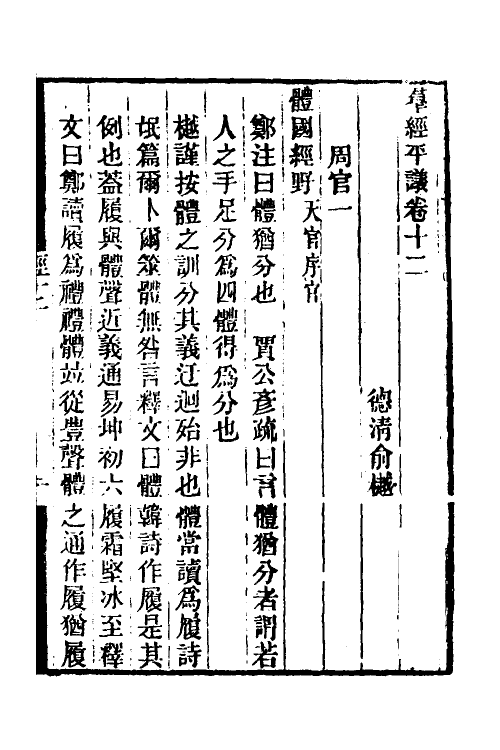 羣經平議卷十二
德清俞樾
周官一
體國經野天官序官
鄭注曰體猶分也　賈公彥疏曰言體猶分者謂若
人之手足分爲四體得爲分也
樾謹按體之訓分其義迂迴殆非也體當讀爲履詩
氓篇爾卜爾筮體無咎言釋文曰體韓詩作履是其
例也蓋履與體聲近義通易坤初六履霜堅冰至釋
文曰鄭讀履爲禮禮體竝從豊聲體之通作履猶履
經十二